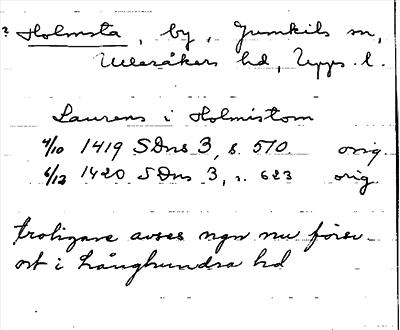 ? Holmsta, by, Jumkils sn,
Ulleråkers hd, Upps. l.
Laurens i Holmistom
4/10 1419 SDns 3, s. 510. orig.
6/12 1420 SDns 3, s. 623 orig.
troligare avses ngn nu försv.
ort i Långhundra hd